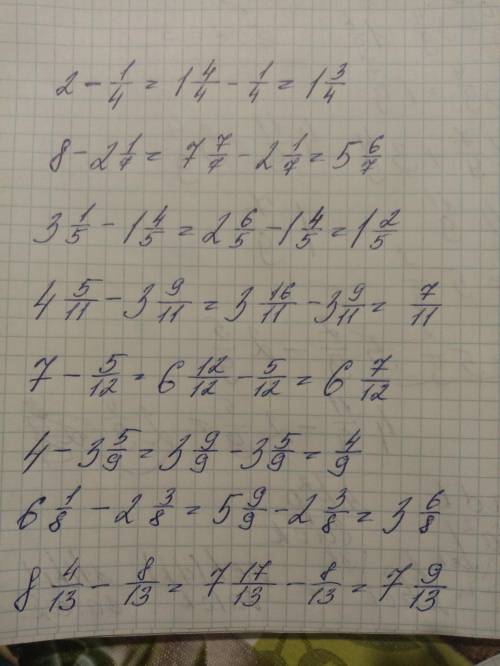 2 - 1/4 = 1 4/4 - 1/4 = 1 3/4
8 - 2 1/7 = 7 7/7 - 2 1/7 = 5 6/7
3 1/5 - 1 4/5 = 2 6/5 - 1 4/5 = 1 2/5
4 5/11 - 3 9/11 = 3 16/11 - 3 9/11 = 7/11
7 - 5/12 = 6 12/12 - 5/12 = 6 7/12
4 - 3 5/9 = 3 9/9 - 3 5/9 = 4/9
6 1/8 - 2 3/8 = 5 9/9 - 2 3/8 = 3 6/8
8 4/13 - 8/13 = 7 17/13 - 8/13 = 7 9/13